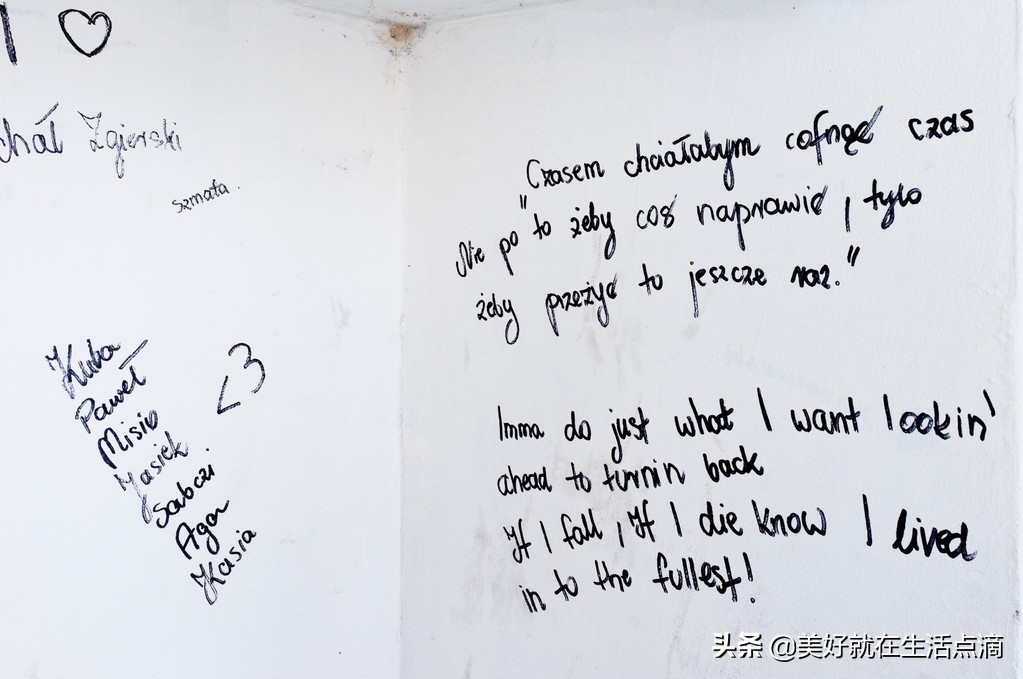 I ♡
chał Zgierski
szmata.
Kuba
Paweł
Misio
Jasiek
Sabczi
Aga
Kasia
<3
Czasem chciałabym cofnąć czas
"Nie po to żeby coś naprawić, tylo
żeby przeżyć to jeszcze raz."
Imma do just what I want lookin'
ahead to turnin back
If I fall, If I die know I lived
in to the fullest!
头条 @美好就在生活点滴